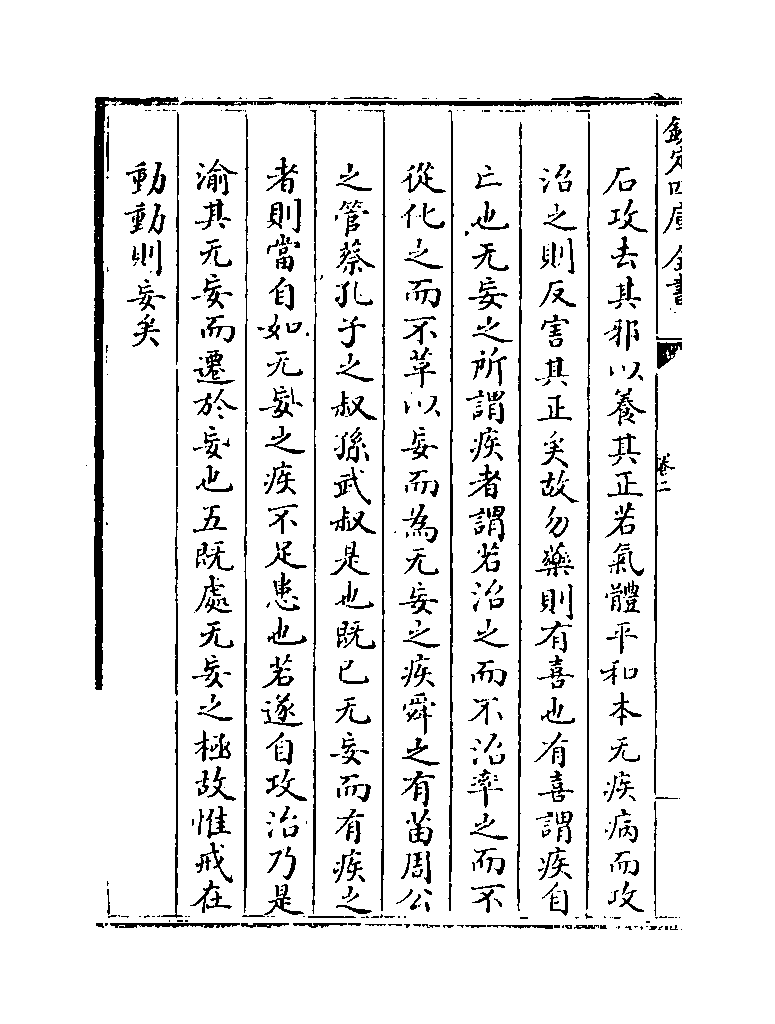 欽定四庫全書
卷二
石攻去其邪以養其正若氣體平和本无疾病而攻
治之則反害其正矣故勿藥則有喜也有喜謂疾自
亡也无妄之所謂疾者謂若治之而不治率之而不
從化之而不革以妄而為无妄之疾舜之有苗周公
之管蔡孔子之叔孫武叔是也既已无妄而有疾之
者則當自如无妄之疾不足患也若遂自攻治乃是
渝其无妄而遷於妄也五既處无妄之極故惟戒在
動動則妄矣